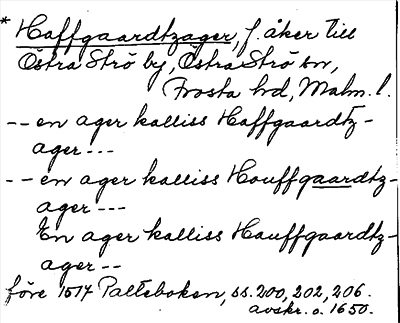 * Haffgaardtzager, f. åker till
Östra Strö by, Östra Strö sn,
Frosta hd, Malm. l.
-- en ager kalliss Haffgaardtz-
ager ---
-- en ager kalliss Houffgaardtz-
ager ---
En ager kalliss Hauffgaardtz-
ager --
före 1514 Palteboken, ss. 200, 202, 206.
avskr. o. 1650.